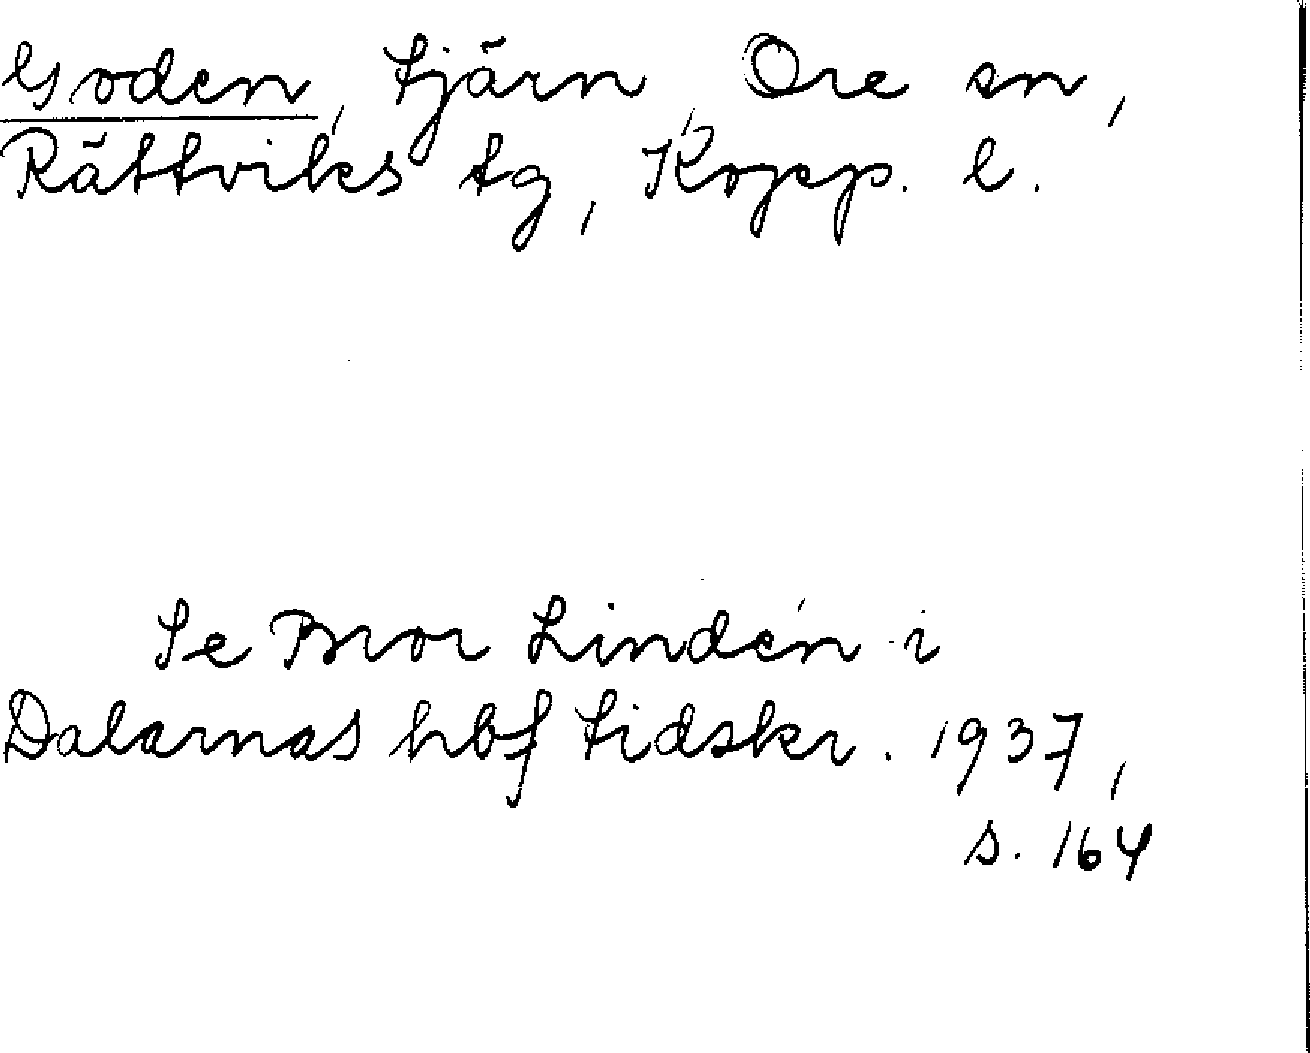 Goden, tjärn, Ore sn,
Rättviks tg, Kopp. l.
Se Bror Lindén i
Dalarnas hbf tidskr. 1937,
s. 164